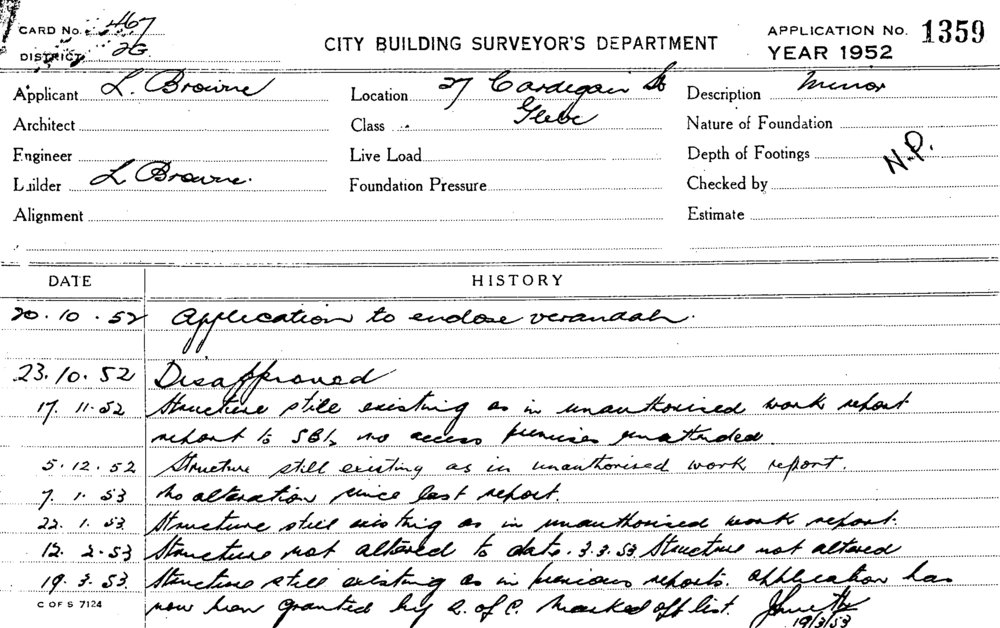 CARD No. 467
DISTRICT 2G
CITY BUILDING SURVEYOR'S DEPARTMENT
APPLICATION No. 1359
YEAR 1952
Applicant L. Browne
Location 27 Cardigan St
Glebe
Description Minor
Architect
Class
Nature of Foundation
Engineer
Live Load
Depth of Footings
N.P.
Builder L Browne.
Foundation Pressure
Checked by
Alignment
Estimate
DATE HISTORY
20.10.52 Application to enclose verandah.
23.10.52 Disapproved
17.11.52 Structure still existing as in unauthorised work report
report to SBI, no access premises unattended.
5.12.52 Structure still existing as in unauthorised work report.
7.1.53 No alteration since last report.
22.1.53 Structure still existing as in unauthorised work report.
12.2.53 Structure not altered to date. 3.3.53 Structure not altered
19.3.53 Structure still existing as in previous reports. Application has
now been granted by C. of C. Marked off list.
19/3/53
C OF S 7124